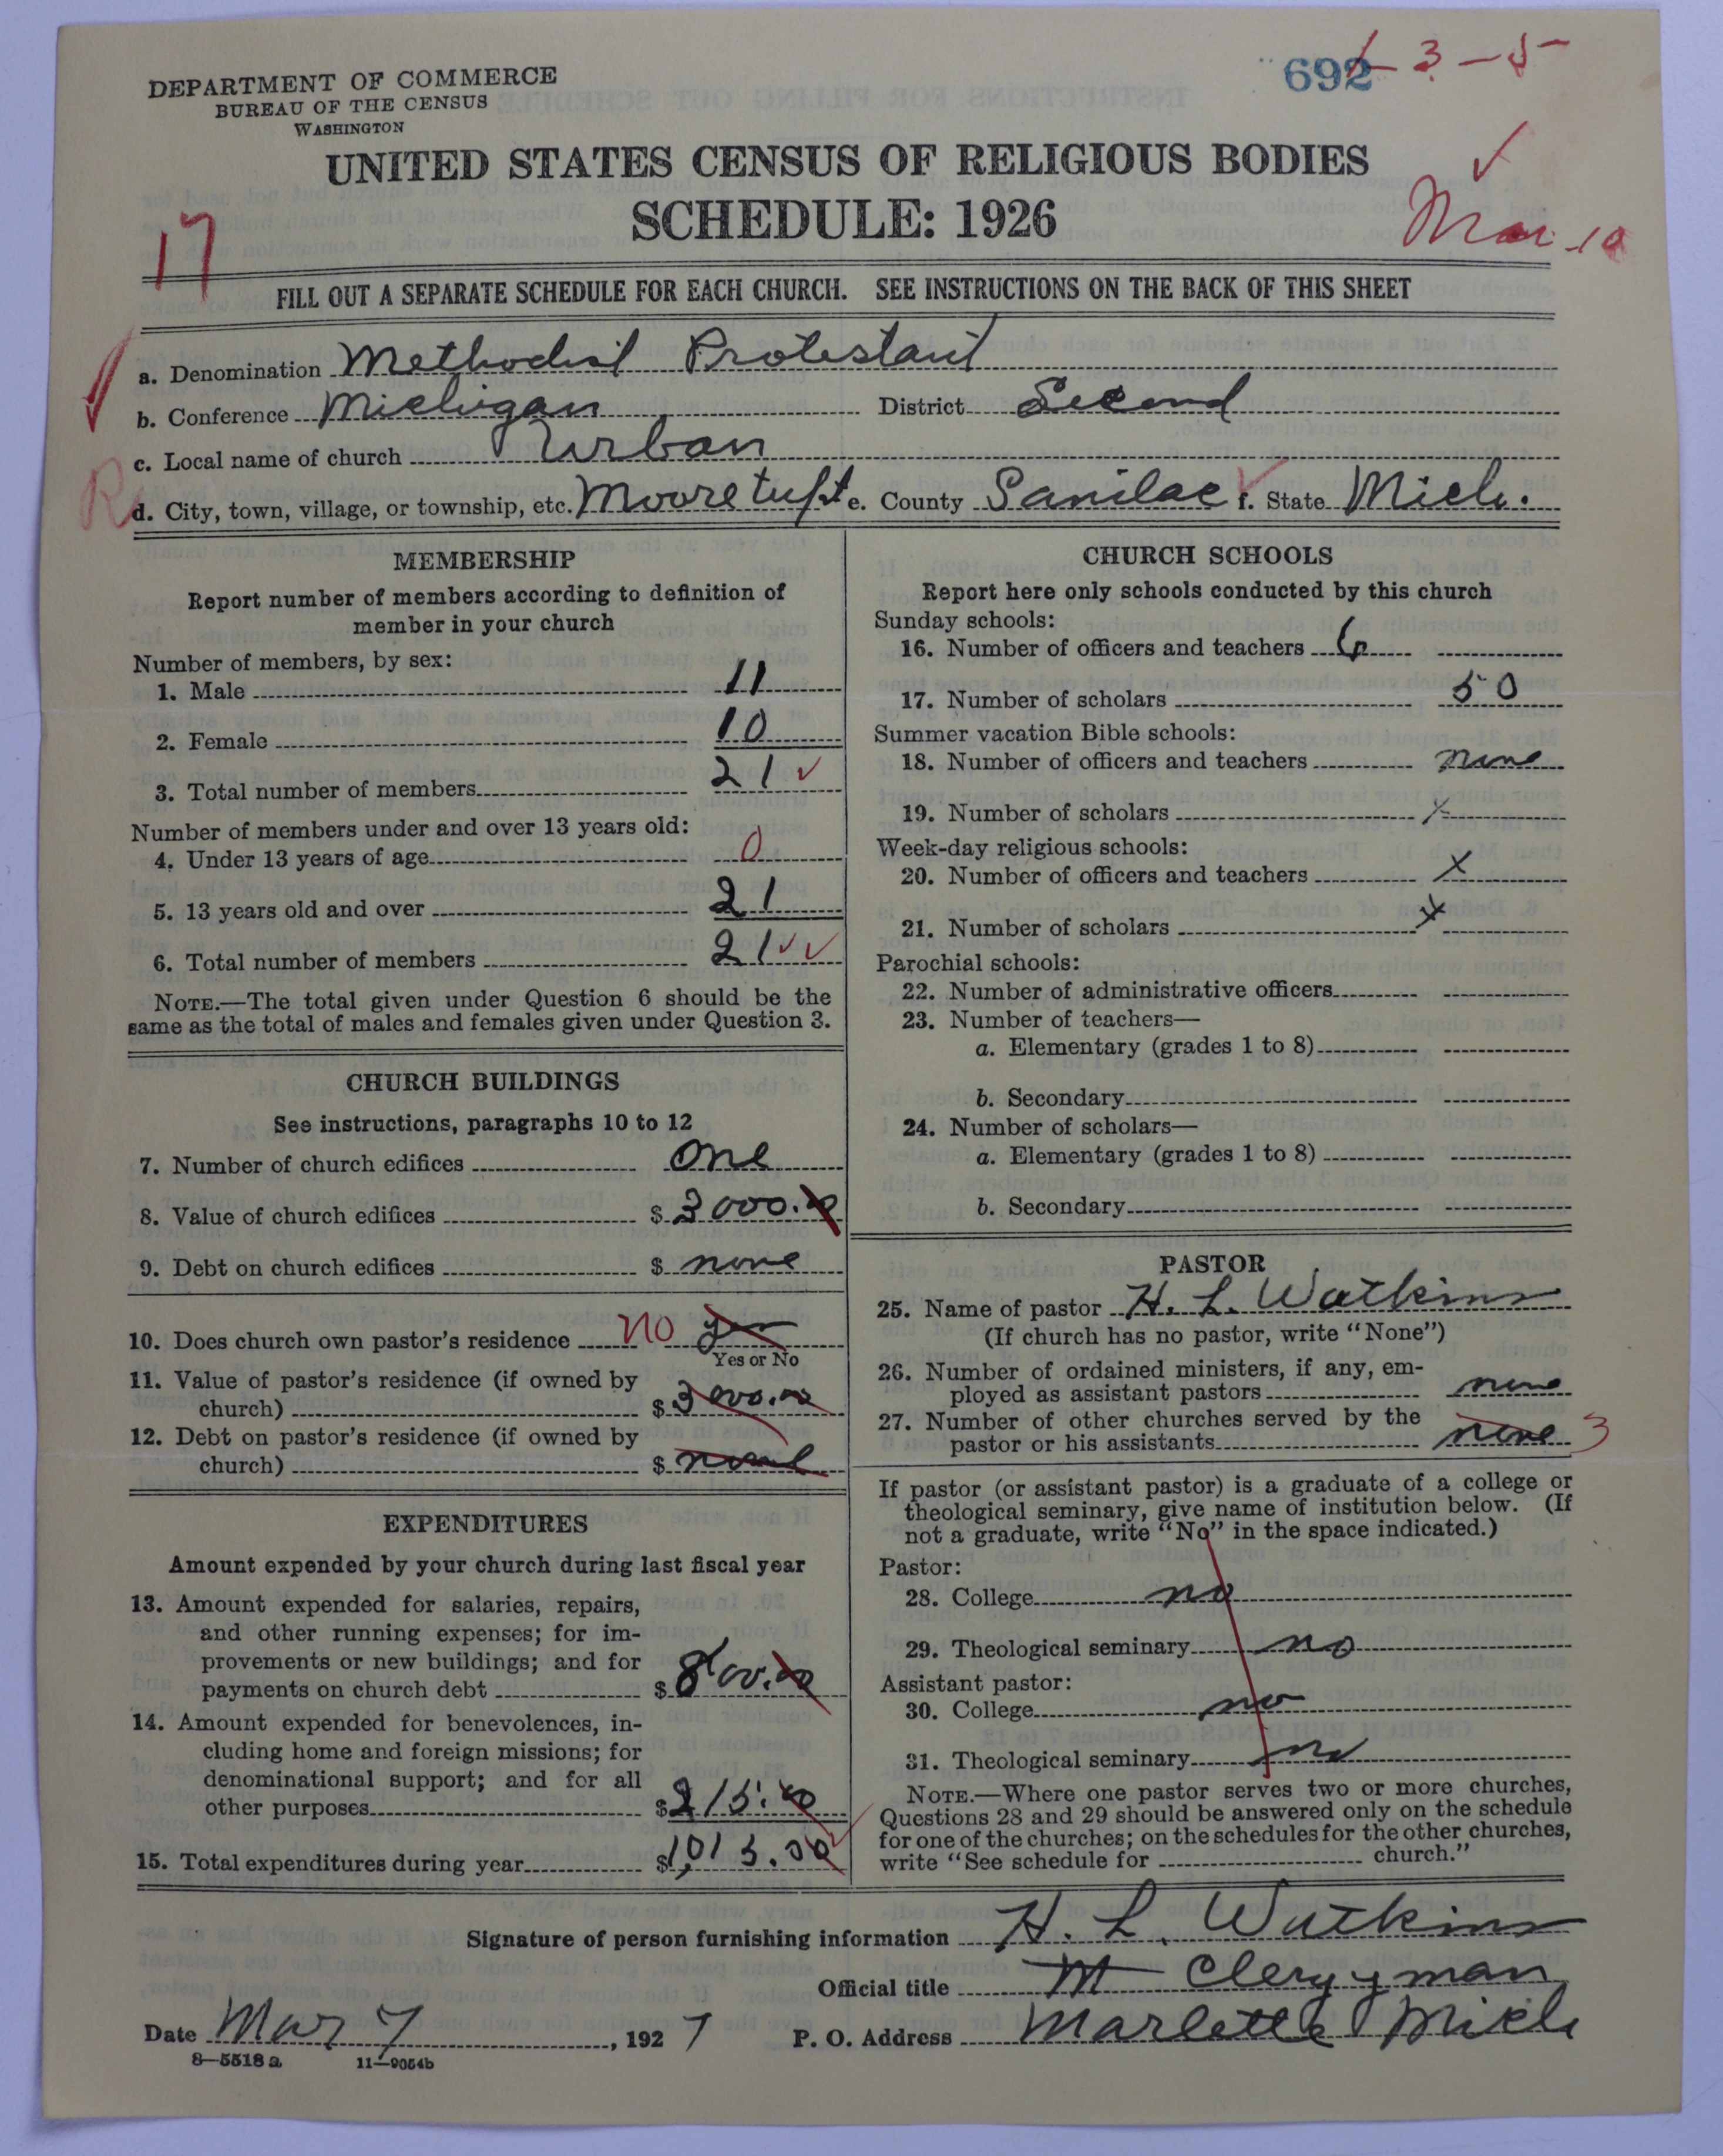 692 - 3 - 5
DEPARTMENT OF COMMERCE
BUREAU OF THE CENSUS
WASHINGTON
UNITED STATES CENSUS OF RELIGIOUS BODIES
SCHEDULE: 1926
17
Mar 10
FILL OUT A SEPARATE SCHEDULE FOR EACH CHURCH. SEE INSTRUCTIONS ON THE BACK OF THIS SHEET
a. Denomination Methodist Protestant
b. Conference Michigan District Second
c. Local name of church Urban
R d. City, town, village, or township, etc. Moore e. County Sanilac f. State Mich.
MEMBERSHIP
Report number of members according to definition of
member in your church
Number of members, by sex:
1. Male 11
2. Female 10
3. Total number of members 21 ✓
Number of members under and over 13 years old:
4. Under 13 years of age 0
5. 13 years old and over 21
6. Total number of members 21 ✓✓
NOTE.—The total given under Question 6 should be the
same as the total of males and females given under Question 3.
CHURCH BUILDINGS
See instructions, paragraphs 10 to 12
7. Number of church edifices one
8. Value of church edifices $ 3000.00
9. Debt on church edifices $ none
10. Does church own pastor's residence no yes
Yes or No
11. Value of pastor's residence (if owned by
church) $ 3000.00
12. Debt on pastor's residence (if owned by
church) $ none
EXPENDITURES
Amount expended by your church during last fiscal year
13. Amount expended for salaries, repairs,
and other running expenses; for im-
provements or new buildings; and for
payments on church debt $ 800.00
14. Amount expended for benevolences, in-
cluding home and foreign missions; for
denominational support; and for all
other purposes $ 215.00
15. Total expenditures during year $ 1,015.00
CHURCH SCHOOLS
Report here only schools conducted by this church
Sunday schools:
16. Number of officers and teachers 6
17. Number of scholars 50
Summer vacation Bible schools:
18. Number of officers and teachers none
19. Number of scholars x
Week-day religious schools:
20. Number of officers and teachers x
21. Number of scholars x
Parochial schools:
22. Number of administrative officers
23. Number of teachers—
a. Elementary (grades 1 to 8)
b. Secondary
24. Number of scholars—
a. Elementary (grades 1 to 8)
b. Secondary
PASTOR
25. Name of pastor H. L. Watkins
(If church has no pastor, write "None")
26. Number of ordained ministers, if any, em-
ployed as assistant pastors none
27. Number of other churches served by the
pastor or his assistants none 3
If pastor (or assistant pastor) is a graduate of a college or
theological seminary, give name of institution below. (If
not a graduate, write "No" in the space indicated.)
Pastor:
28. College no
29. Theological seminary no
Assistant pastor:
30. College no
31. Theological seminary no
NOTE.—Where one pastor serves two or more churches,
Questions 28 and 29 should be answered only on the schedule
for one of the churches; on the schedules for the other churches,
write "See schedule for church."
Signature of person furnishing information H. L. Watkins
Official title M Clergyman
Date Mar 7, 1927 P. O. Address Marlette Mich
8—5518 a 11—9054b